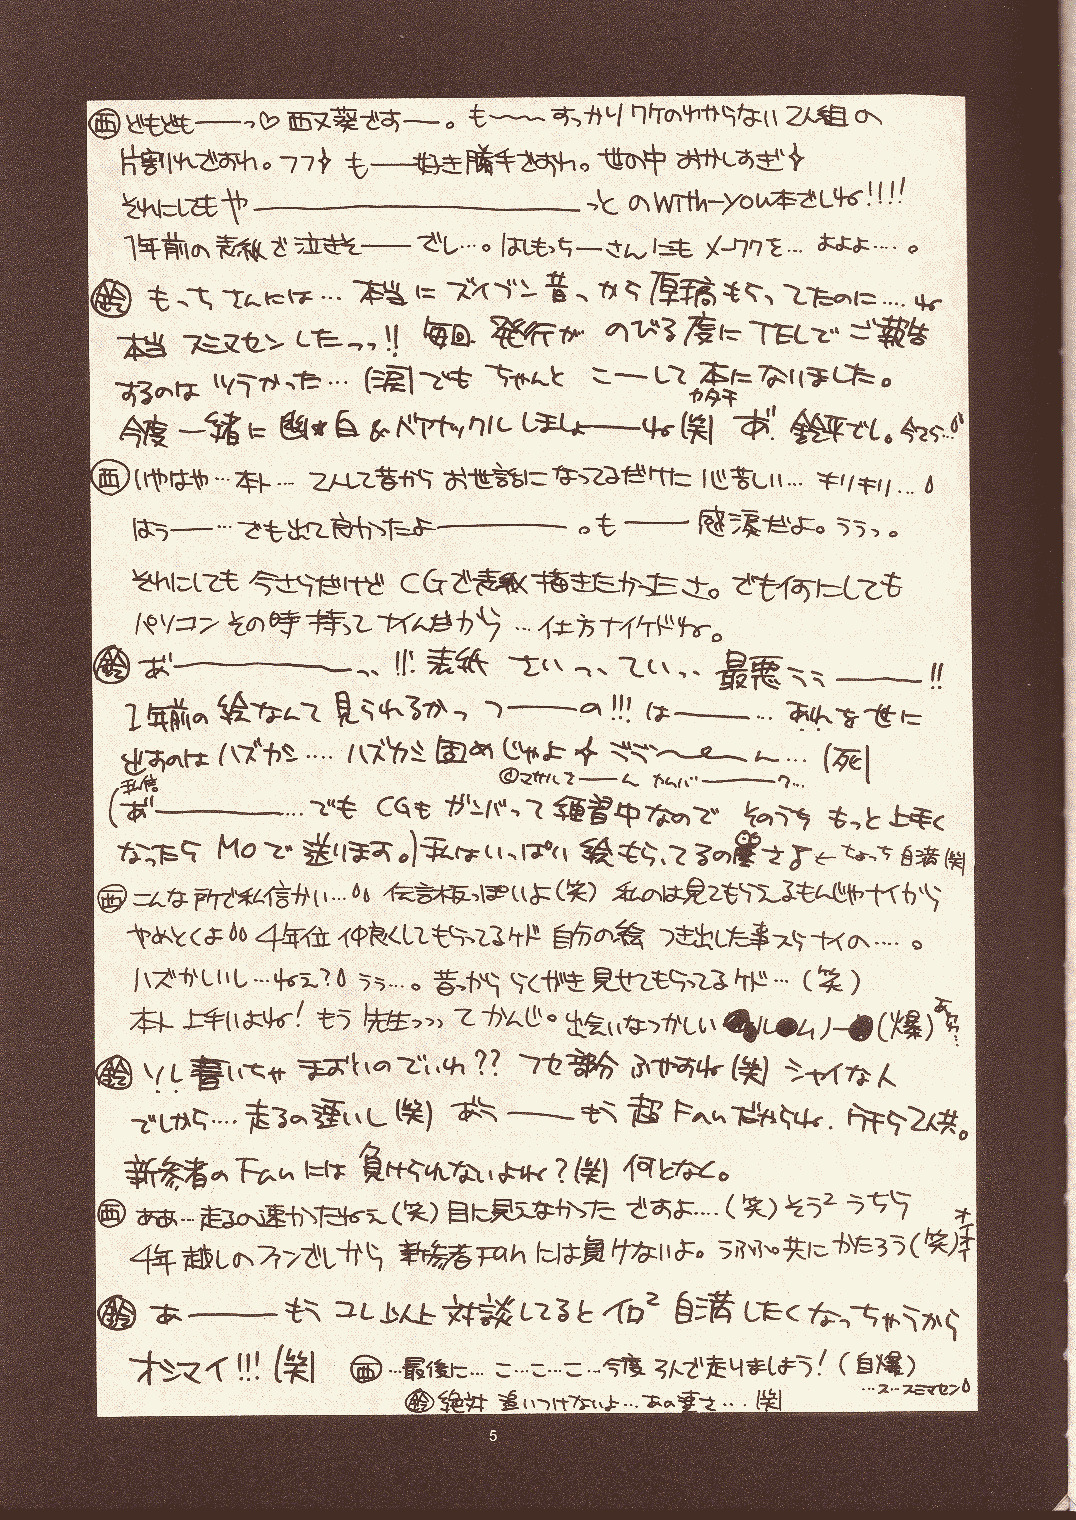 西 どもどもーーっ♡ 西又葵ですー。も〜〜すっかりワケのわからない2人組の
片割れでおわ。フフ も——好き勝手でおわ。世の中 おかしすぎ
それにしてもや————————っと のWith-you本でしね!!!!
1年前の表紙で泣きそ——でし…。はしもっちーさんにもメーワクを… よよよ…。
鈴 もっちさんには… 本当にズイブン昔っから原稿もらってたのに…. ね
本当 スミマセンしたっっ!! 毎回 発行が のびる度にTELでご報告
するのは ツラかった…(涙)でも ちゃんと こーして本になりました。
カタチ
今度 一緒に幽★白&バヤナックルしましょ——ね(笑) あ゛ 鈴平でし。今さら…
西 いやはや…本ト… 2人して昔から お世話になってるだけに心苦しい… キリキリ…
はぅ——…でも出て良かったよ————。も——感涙だよ。ううっ。
それにしても 今さらだけど CGで表紙描きたかったさ。でも何にしても
パソコン その時 持ってナイんだから …仕方ナイケドね。
鈴 あ゛————っ、!!! 表紙 さいっ、てい、、最悪ぅぅ——!!
1年前の絵なんて 見られるかっ つ——の!!! は——… あれを世に
出すのはハズカシ…. ハズカシ固めじゃよ ごご〜〜ん…(死)
私信 マサルさ——ん カムバ——ク…
(あ゛————…でも CGも ガンバって練習中なので そのうち もっと上手く
なったら MOで 送ります。)私はいっぱい 絵もらってるの さよ←ちょっち自満(笑)
西 こんな所で私信かい… 伝言板っぽいよ(笑) 私のは見てもらえるもんじゃナイから
やめとくよ 4年位 仲良くしてもらってるケド 自分の絵 つき出した事スラナイの….。
ハズかしいし…ねぇ? うぅ…。昔っから らくがき見せてもらってるケド…(笑)
本ト 上手いよね! もう 先生っっっ てかんじ。出会いなつかしい●ル●ムノー●(爆)
鈴 ソレ書いちゃ まずいのでいわ?? フセ部分 ふやすね(笑)シャイな人
でしから…. 走るの遅いし(笑) あう——もう 超Fanだからね. ウチら2人共。
新参者のFanには 負けられないよね?(笑) 何となく。
西 ああ…走るの速かったねぇ(笑)目に見えなかった ですよ….(笑)そう² うちら
4年越しのファンでしから 新参者Fanには負けないよ。うふふ。共にかたろう(笑)
オイオイ
鈴 あ———もう コレ以上 対談してるとイロ² 自満したくなっちゃうから
オシマイ!!!(笑) 西…最後に… こ…こ…こ…今度 3人で走りましょう!(自爆)
…ス…スミマセン
鈴 絶対 追いつけないよ…あの速さ…(笑)
5